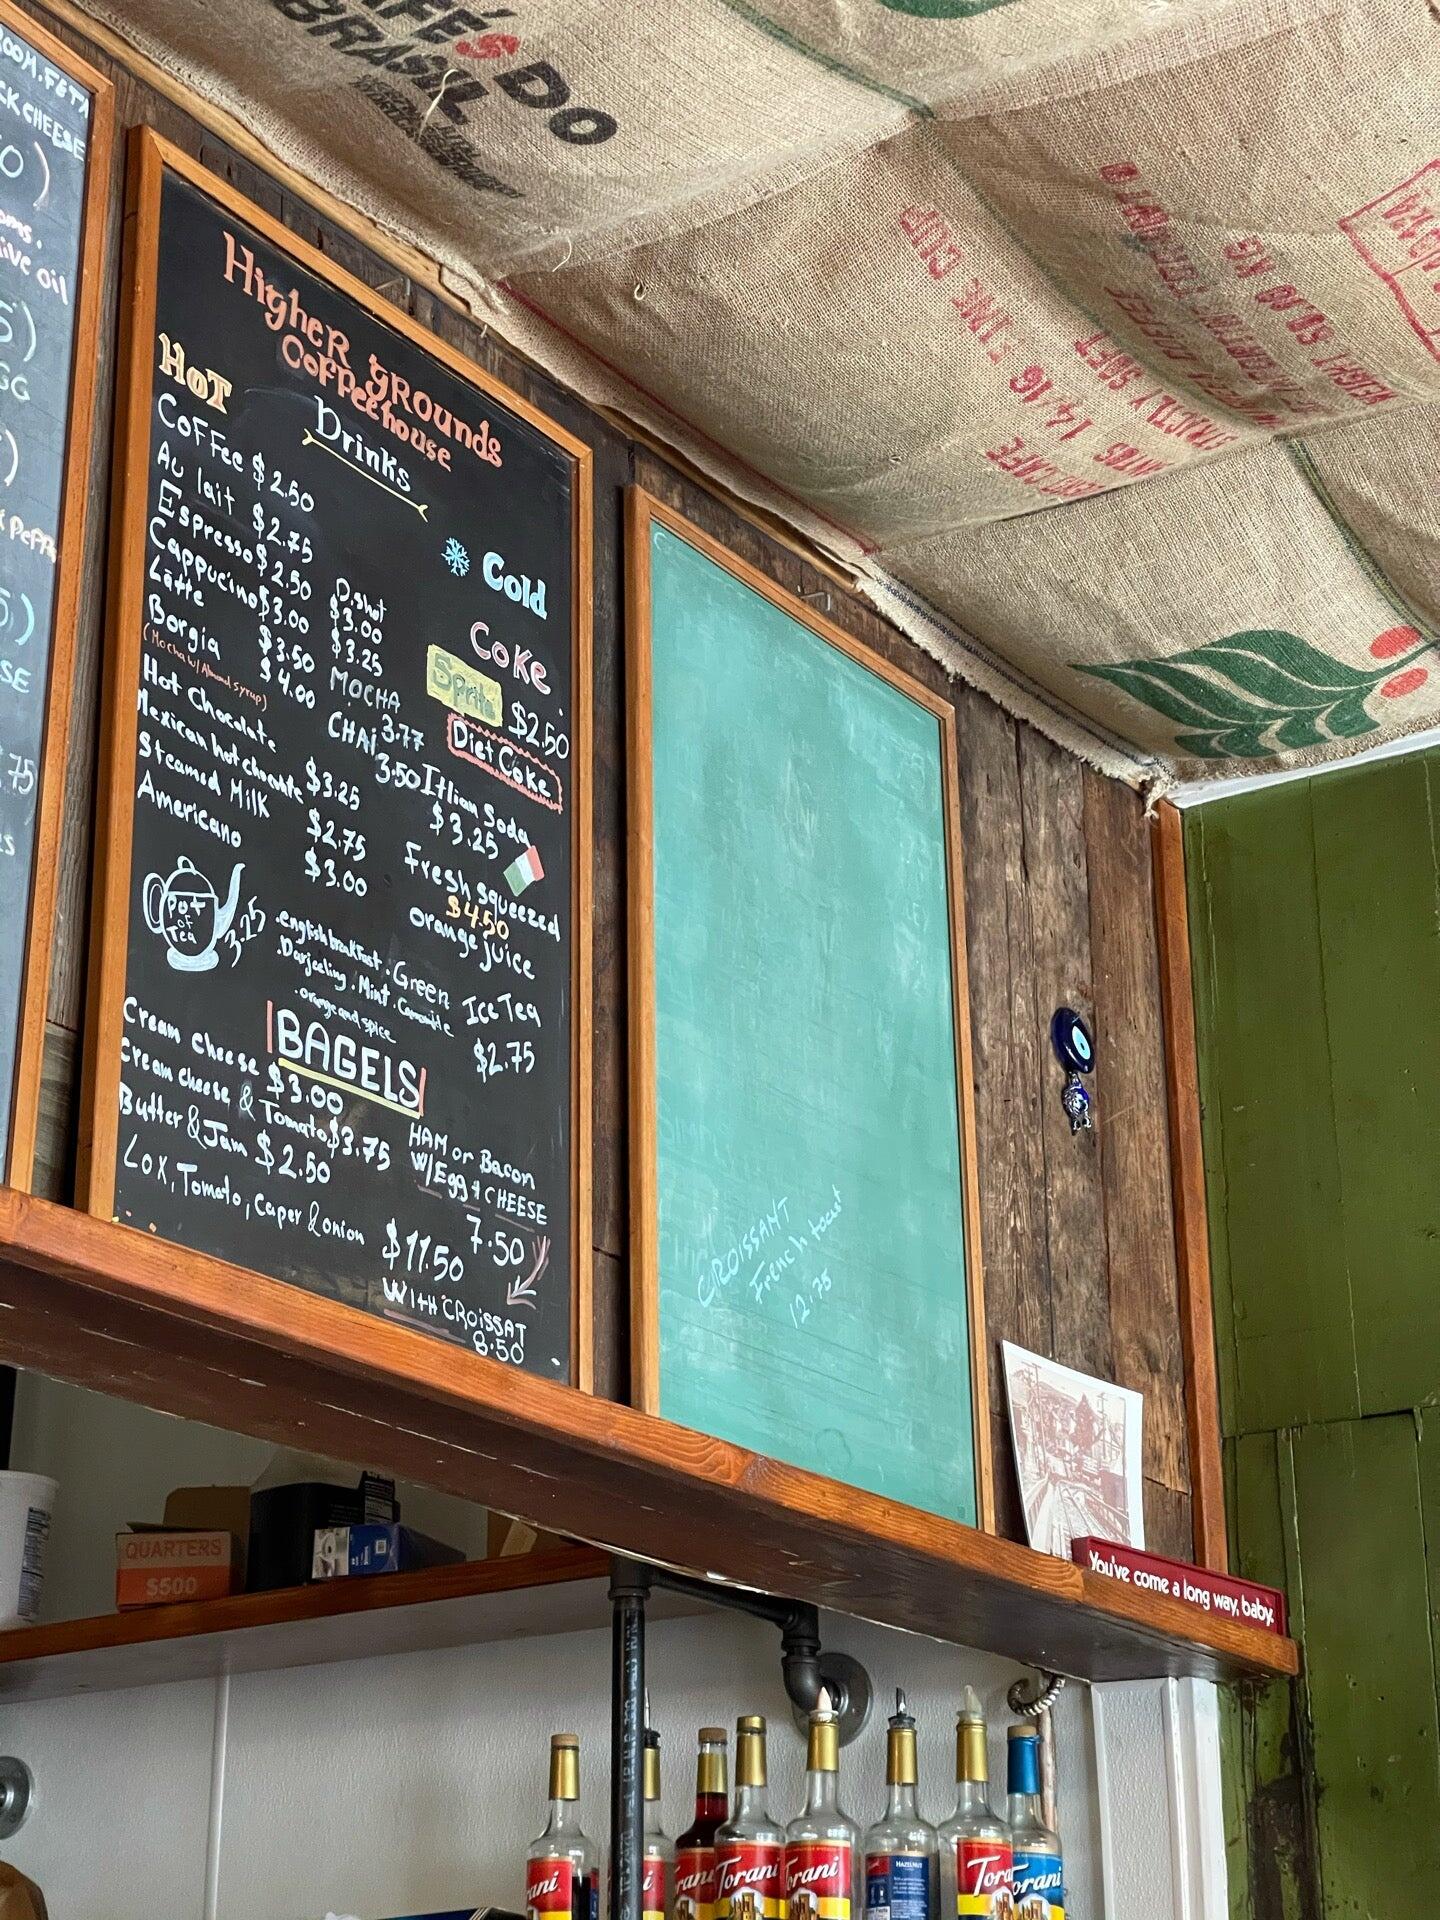 OOM, FETA
CK CHEESE
ive oil
GG
.75
CAFÉS DO
BRASIL
Higher GROunds
Coffeehouse
Drinks
HOT
Coffee $2.50
Au lait $2.75
Espresso $2.50
D.shot
Cappucino $3.00 $3.00
Latte $3.50 $3.25
Borgia $4.00
(Mocha w/ Almond syrup)
MOCHA 3.77
CHAi 3.50
Hot Chocolate $3.25
Mexican hot chocolate
Steamed Milk $2.75
Americano $3.00
Cold
Coke
Sprite $2.50
Diet Coke
Itlian Soda
$3.25
Fresh squeezed
$4.50
orange juice
Ice Tea
$2.75
Pot
OF
Tea
3.25
.english breakfast .Green
.Darjeeling .Mint .Camomile
.orange and spice
BAGELS
Cream cheese $3.00
Cream cheese & Tomato $3.75
Butter & Jam $2.50
LOX, Tomato, caper & onion $11.50
HAM or Bacon
W/Egg & CHEESE
7.50
WitH CROiSSAT
8.50
CROISSANT
French toast
12.75
FINE CUP
14/16
STRICTLY SOFT
COFFEE
You've come a long way, baby.
QUARTERS
$500
Torani
Torani
Torani
HAZELNUT
Torani
Torani